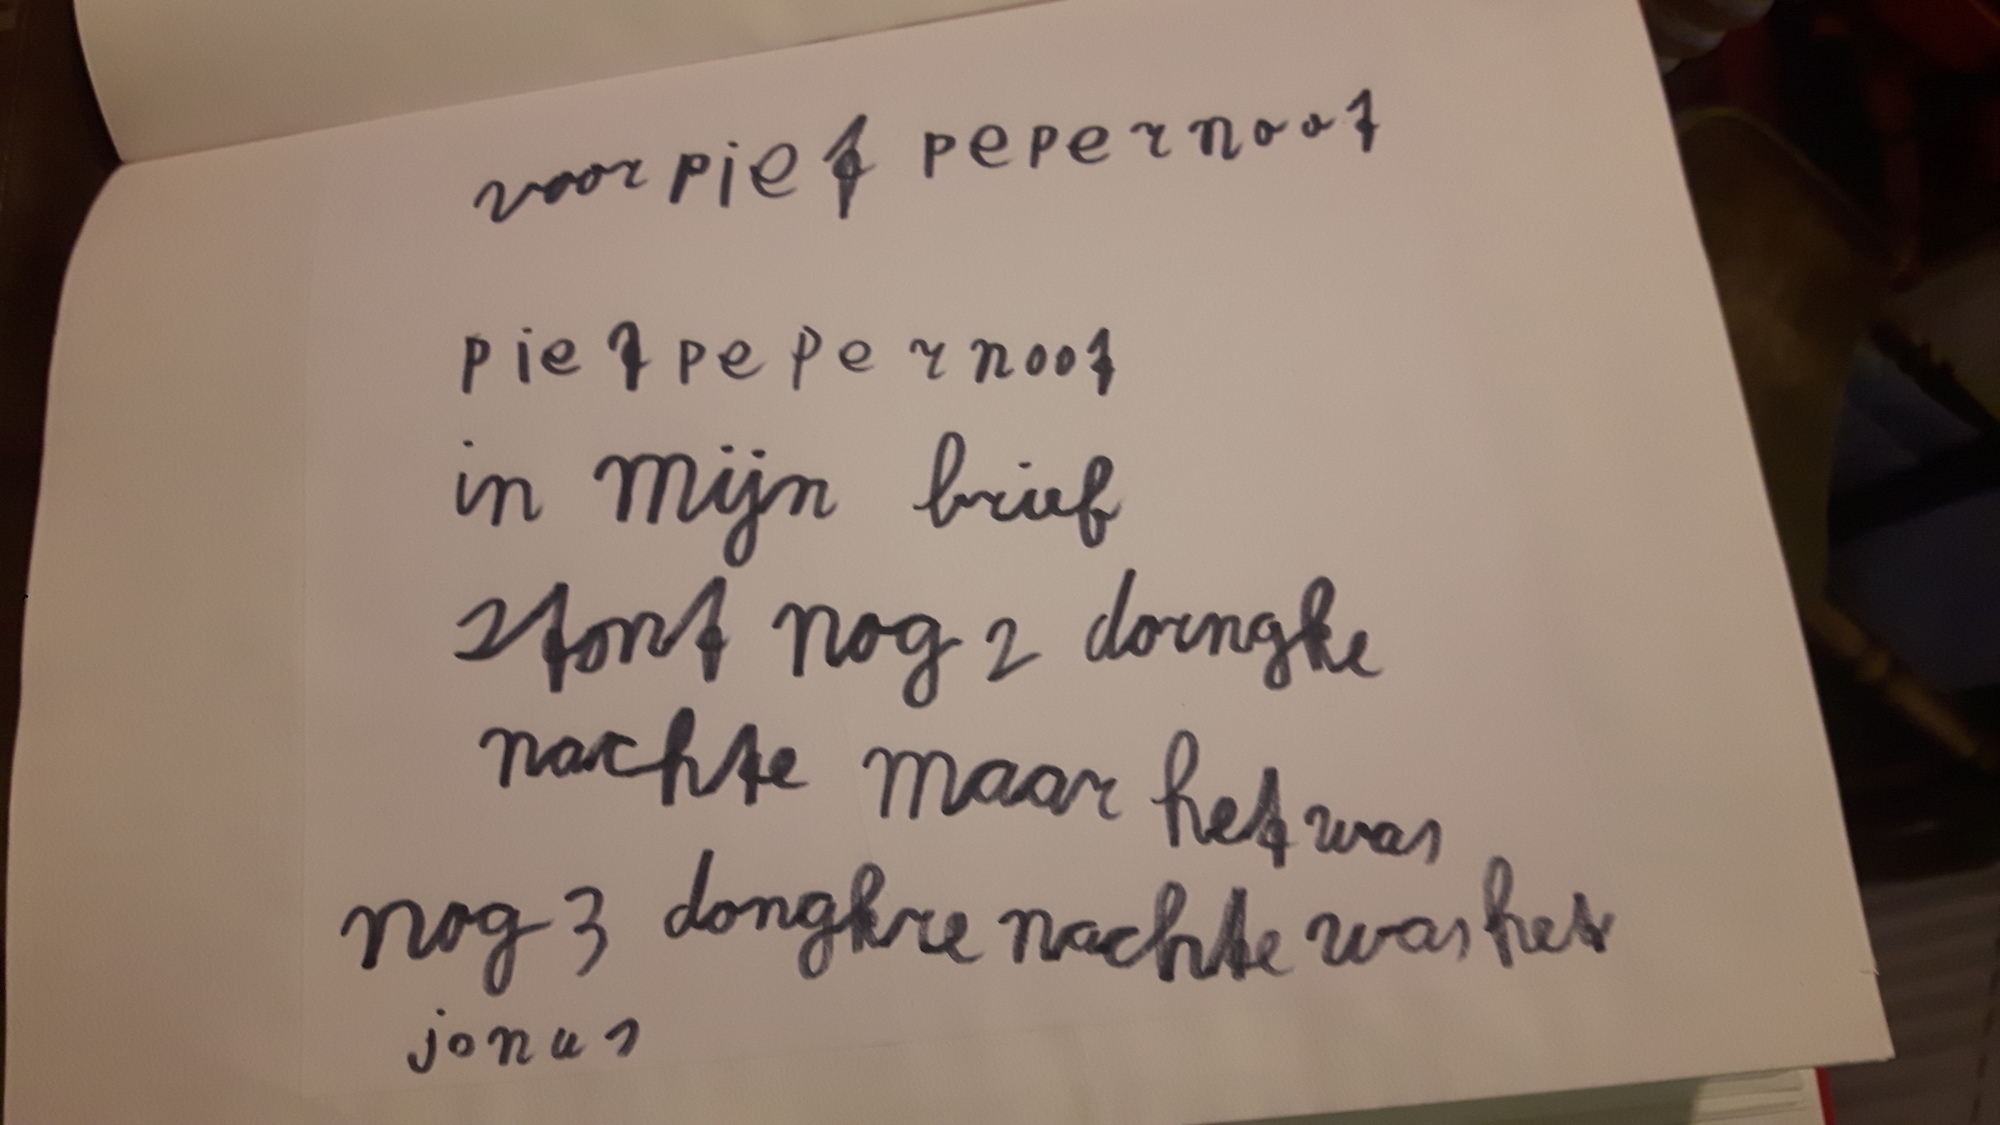 voor piet pepernoot
piet pepernoot
in mijn brief
stont nog 2 dorngke
nachte maar het was
nog 3 dongkre nachte was het
jonas